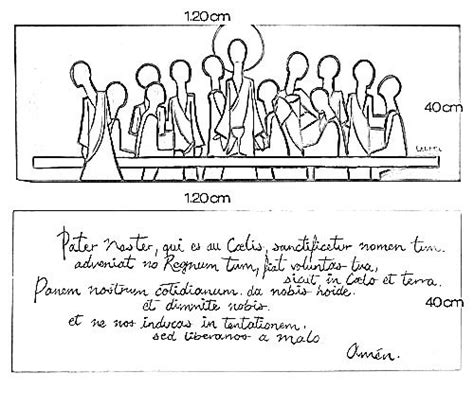 1.20cm
40cm
1.20cm
Pater Noster, qui es au Cœlis, sanctificetur nomen tum.
adveniat no Regnum tum, fiat voluntas tua,
sicut in Cœlo et terra.
Panem nostrum cotidianum. da nobis hoide.
et dimnite nobis.
et ne nos inducas in tentationem.
sed liberanos a malo
Amén.
40cm